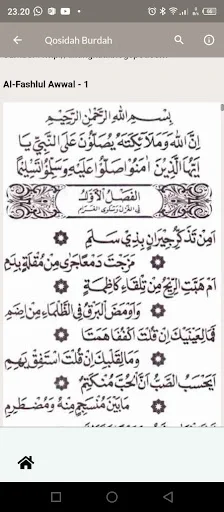 23.20
Qosidah Burdah
Al-Fashlul Awwal - 1
بِسْمِ اللهِ الرَّحْمٰنِ الرَّحِيْمِ
اِنَّ اللهَ وَمَلَآئِكَتَهُ يُصَلُّوْنَ عَلَى النَّبِيِّ يَا
اَيُّهَا الَّذِيْنَ اٰمَنُوْا صَلُّوْا عَلَيْهِ وَسَلِّمُوْا تَسْلِيْمًا
اَلْفَصْلُ الْاَوَّلُ
فِي الْغَزَلِ وَشَكْوَى الْغَرَامِ
اَمِنْ تَذَكُّرِ جِيْرَانٍ بِذِيْ سَلَمِ
مَزَجْتَ دَمْعًا جَرٰى مِنْ مُقْلَةٍ بِدَمِ
اَمْ هَبَّتِ الرِّيْحُ مِنْ تِلْقَاءِ كَاظِمَةٍ
وَاَوْمَضَ الْبَرْقُ فِي الظَّلْمَاءِ مِنْ اِضَمِ
فَمَا لِعَيْنَيْكَ اِنْ قُلْتَ اكْفُفَا هَمَتَا
وَمَا لِقَلْبِكَ اِنْ قُلْتَ اسْتَفِقْ يَهِمِ
اَيَحْسَبُ الصَّبُّ اَنَّ الْحُبَّ مُنْكَتِمٌ
مَا بَيْنَ مُنْسَجِمٍ مِنْهُ وَمُضْطَرِمِ